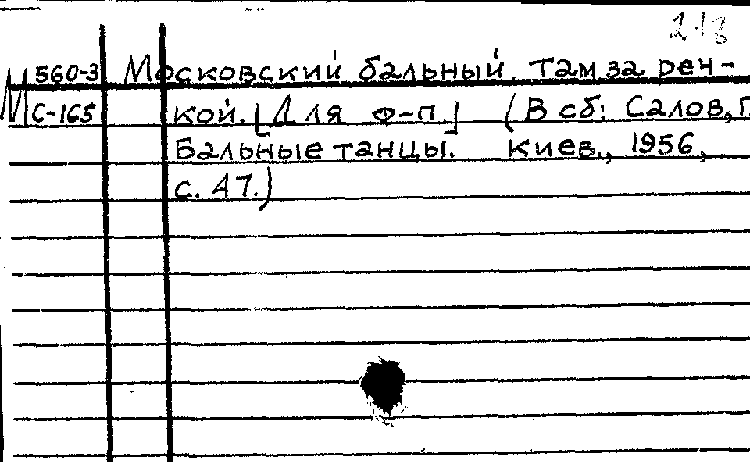 213
М 560-3 Московский бальный. Там за реч-
С-165 кой. [Для ф-п] (В сб: Салов, Г.
Бальные танцы. Киев., 1956,
с. 47.)